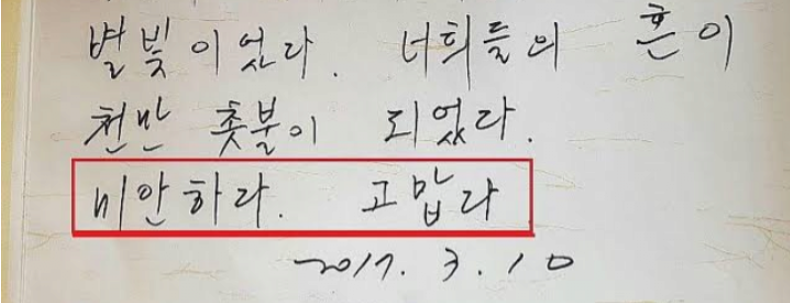 별빛이었다. 너희들의 혼이
천만 촛불이 되었다.
미안하다. 고맙다
2017. 3. 10